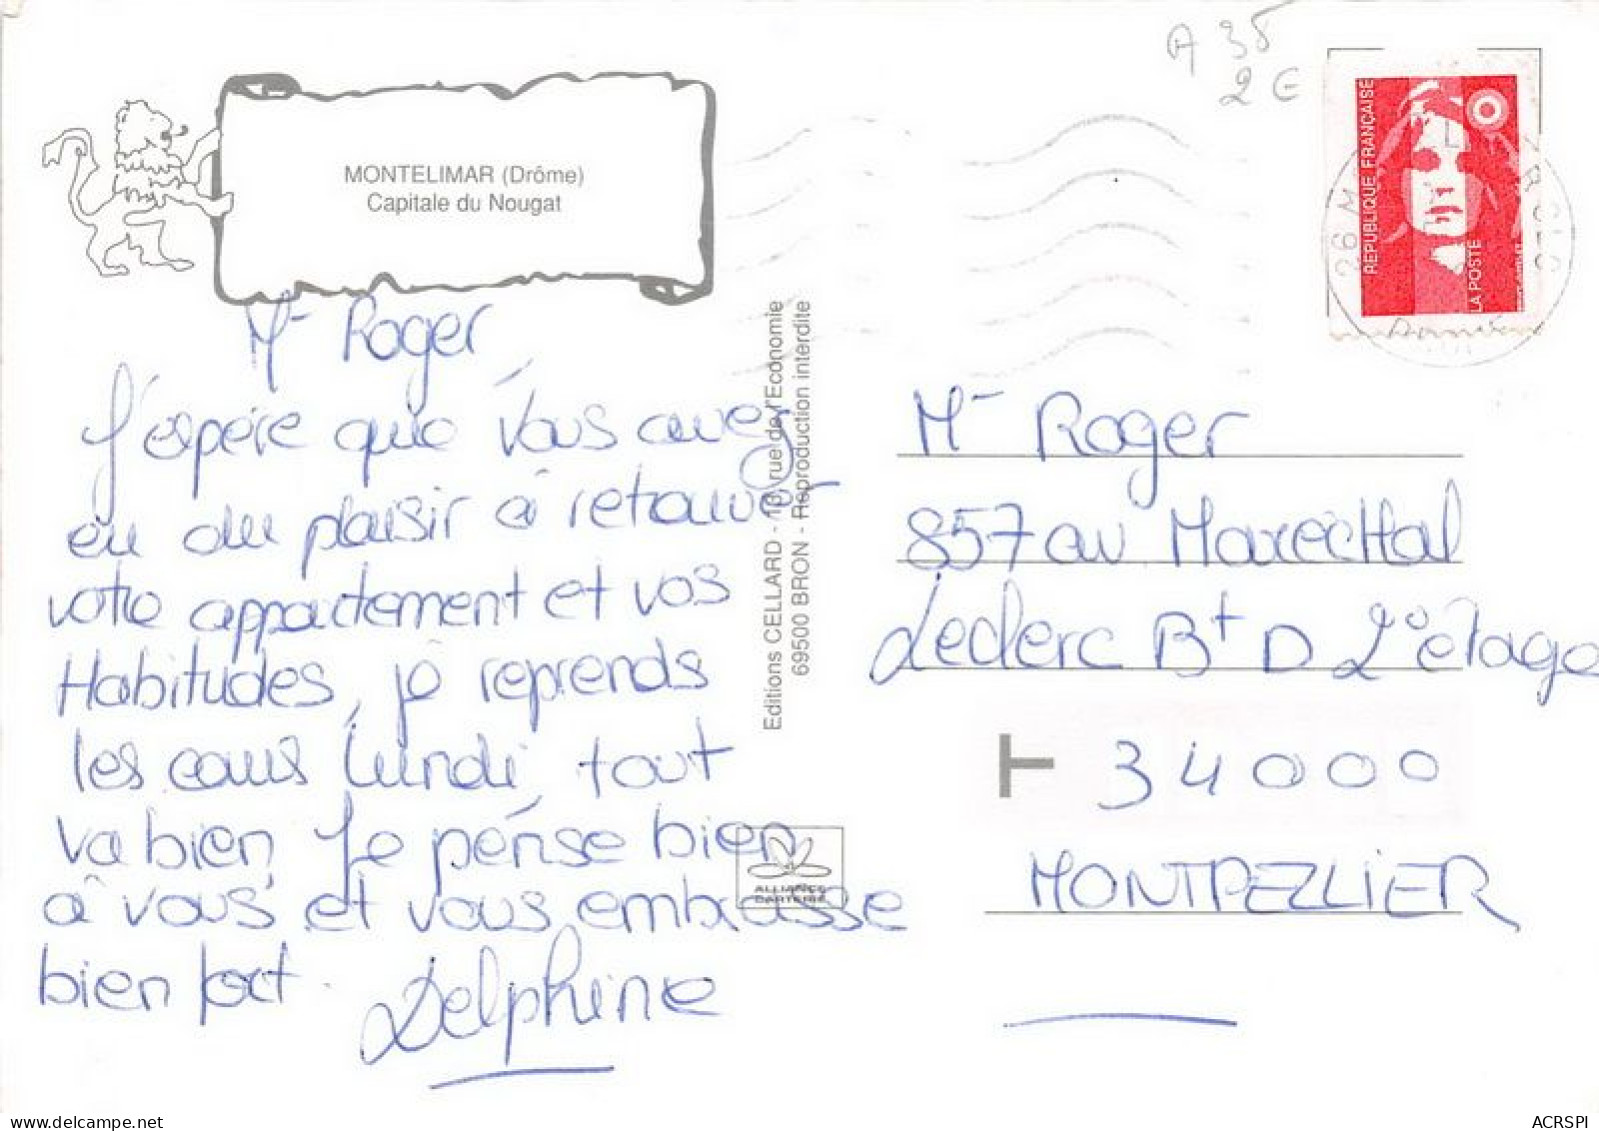 A 38
2 €
MONTELIMAR (Drôme)
Capitale du Nougat
REPUBLIQUE FRANÇAISE
LA POSTE
Mr Roger
J'espère que Vous avez
eu du plaisir à retrouver
votre appartement et vos
Habitudes, je reprends
les cours lundi, tout
va bien Je pense bien
à vous et vous embrasse
bien fort.
Delphine
Editions CELLARD - 13, rue de l'Economie
69500 BRON - Reproduction interdite
ALLIANCE
CARTERIE
Mr Roger
857 av Marecthal
Leclerc Bt D 2° étage
34000
MONTPELLIER
www.delcampe.net
ACRSPI